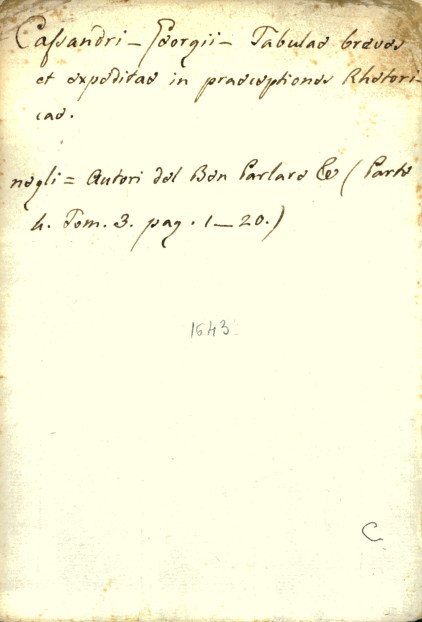 Cassandri - Georgii - Tabulae breves
et expeditae in praeceptiones Rhetori-
cae.
negli = Autori del Ben Parlare &c (Parte
4. Tom. 3. pag. 1 — 20.)
1643
C